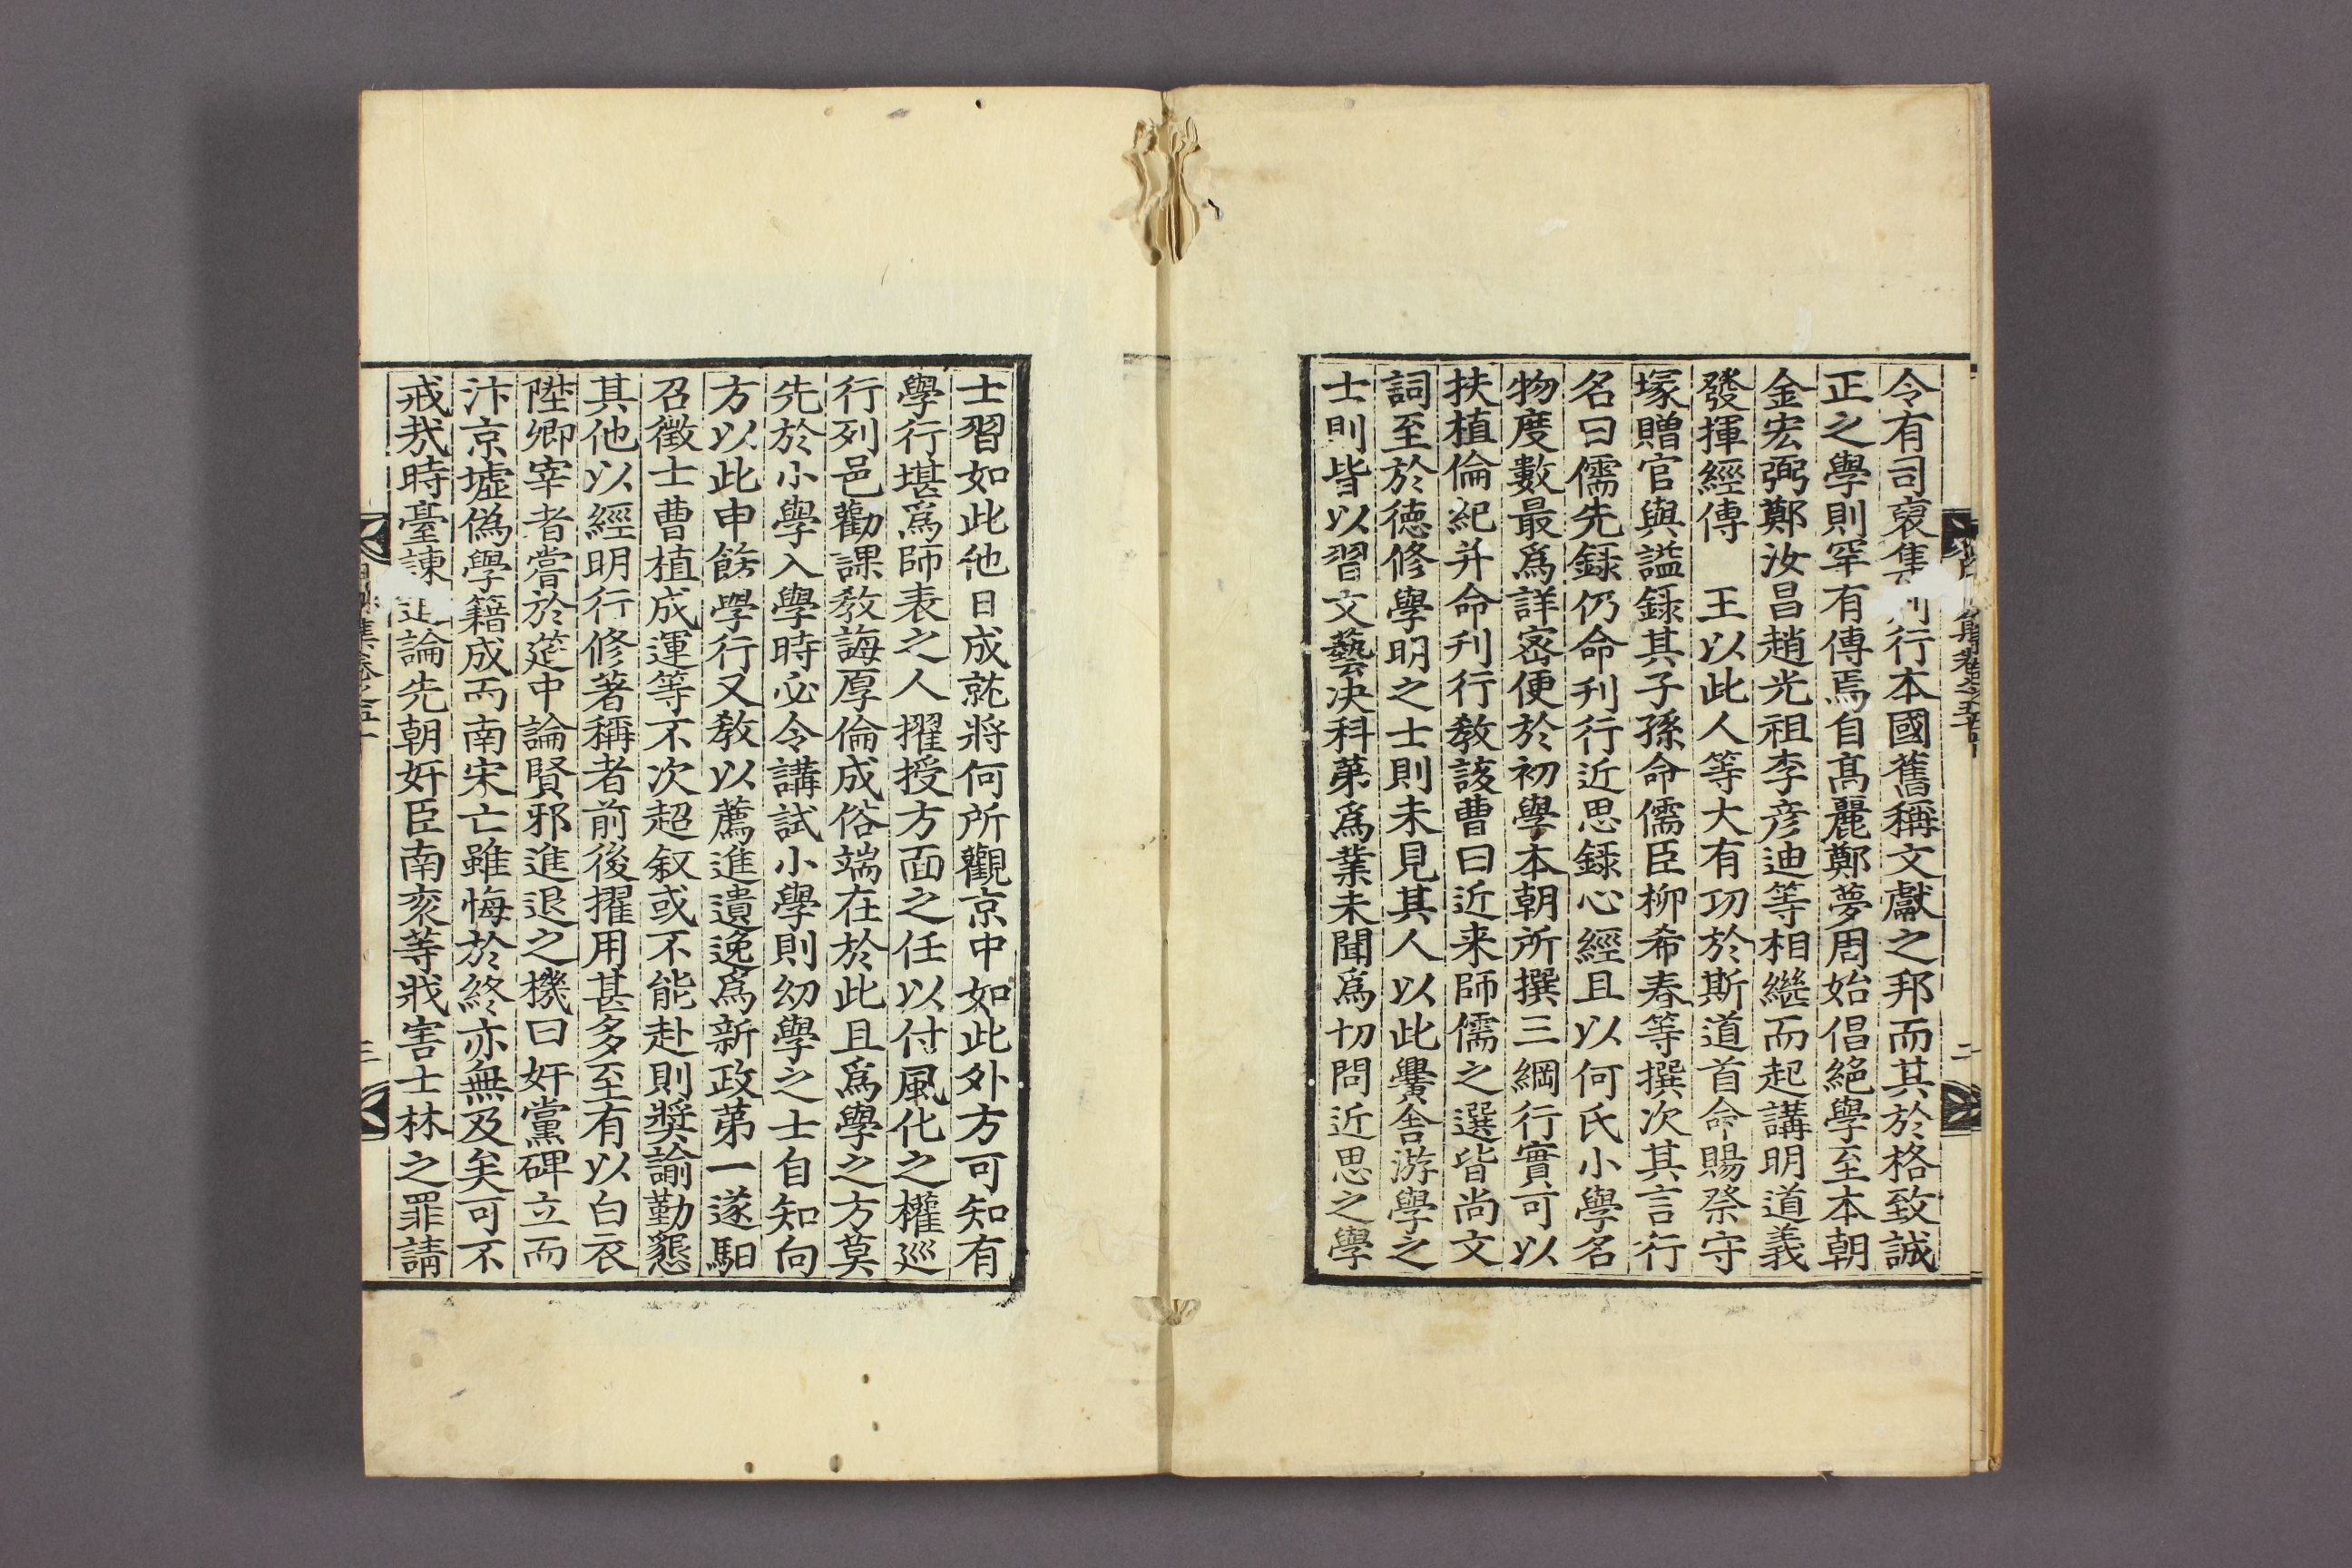 令有司裒集刋行本國舊稱文獻之邦而其於格致誠
正之學則罕有傳焉自髙麗鄭夢周始倡絕學至本朝
金宏弼鄭汝昌趙光祖李彦迪等相繼而起講明道義
發揮經傳　王以此人等大有功於斯道首命賜祭守
塚贈官與謚録其子孫命儒臣柳希春等撰次其言行
名曰儒先録仍命刋行近思録心經且以何氏小學名
物度數最爲詳宻便於初學本朝所撰三綱行實可以
扶植倫紀并命刋行敎該曹曰近来師儒之選皆尚文
詞至於徳修學明之士則未見其人以此黌舍游學之
士則皆以習文藝决科苐爲業未聞爲切問近思之學
士習如此他日成就將何所觀京中如此外方可知有
學行堪爲師表之人擢授方面之任以付風化之權巡
行列邑勸課敎誨厚倫成俗端在於此且爲學之方莫
先於小學入學時必令講試小學則㓜學之士自知向
方以此申飭學行又敎以薦進遺逸爲新政苐一遂馹
召徵士曹植成運等不次超叙或不能赴則奬諭勤懇
其他以經明行修著稱者前後擢用甚多至有以白衣
陞卿宰者嘗於筵中論賢邪進退之機曰奸黨碑立而
汴京墟僞學籍成而南宋亡雖悔於終亦無及矣可不
戒㦲時臺諫論先朝奸臣南衮等戕害士林之罪請
二
三